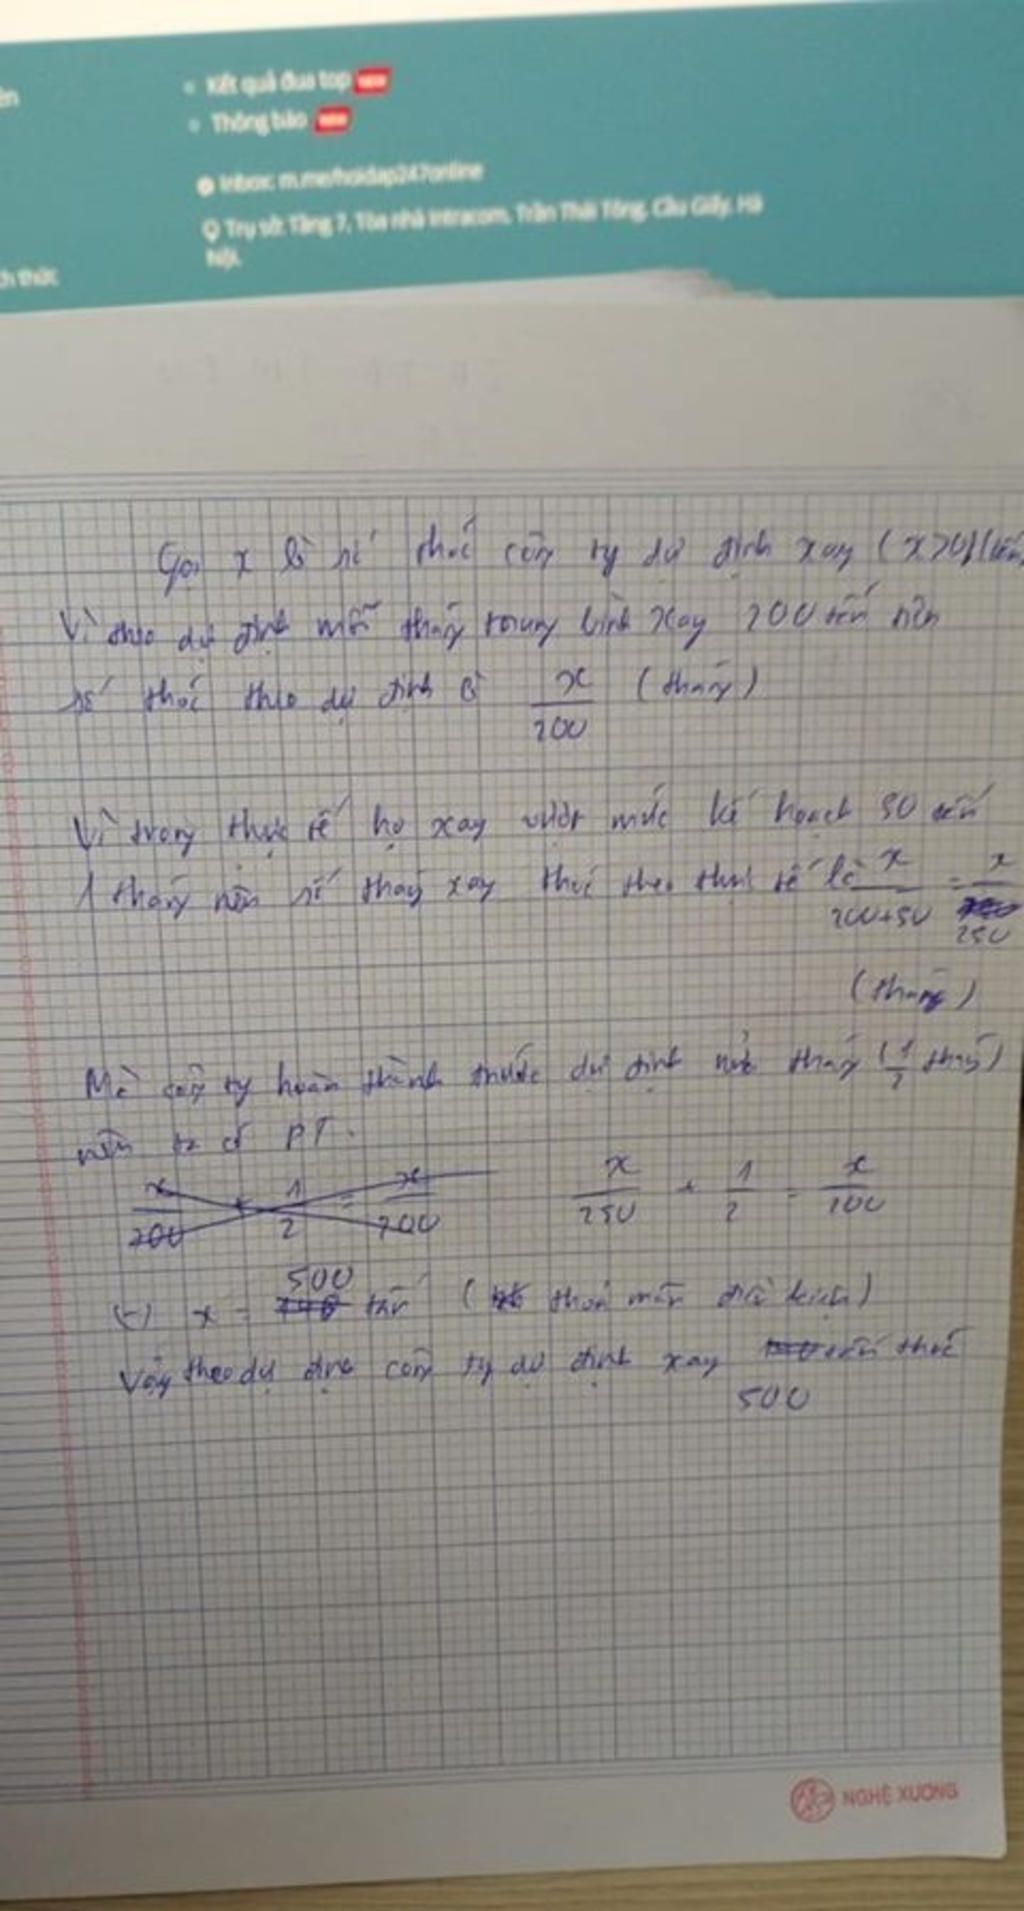 ên
Kết quả đua top NEW
Thông báo NEW
Inbox: m.me/hoidap247online
Trụ sở: Tầng 7, Tòa nhà Intracom, Trần Thái Tông, Cầu Giấy, Hà
Nội.
ch thức
Gọi x là số thóc công ty dự định xay (x>0)(tấn
Vì theo dự định mỗi tháng trung bình xay 200 tấn nên
số thóc theo dự định là x/200 (tháng)
Vì trong thực tế họ xay vượt mức kế hoạch 50 tấn
1 tháng nên số tháng xay thóc theo thực tế là x/200+50 = x/250
(tháng)
Mà công ty hoàn thành trước dự định nửa tháng (1/2 tháng)
nên ta có PT.
x/200 + 1/2 = x/200 x/250 + 1/2 = x/200
(-) x = 500 tấn (thoả mãn điều kiện)
Vậy theo dự định công ty dự định xay 500 tấn thóc
NGHỆ XƯƠNG